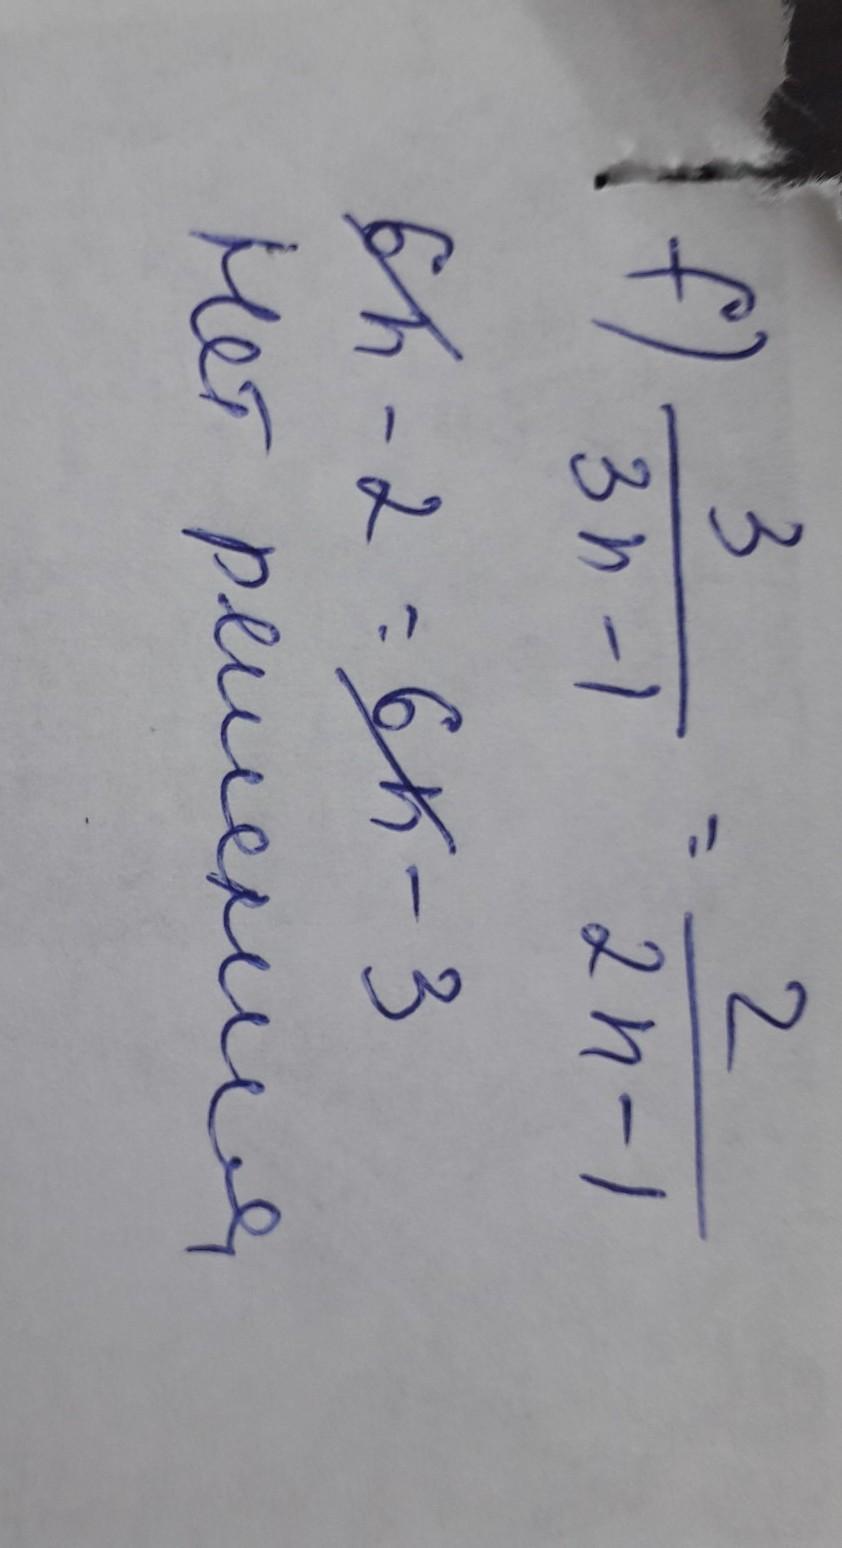 f) 3/(3n-1) = 2/(2n-1)
6n - 2 = 6n - 3
Нет решения